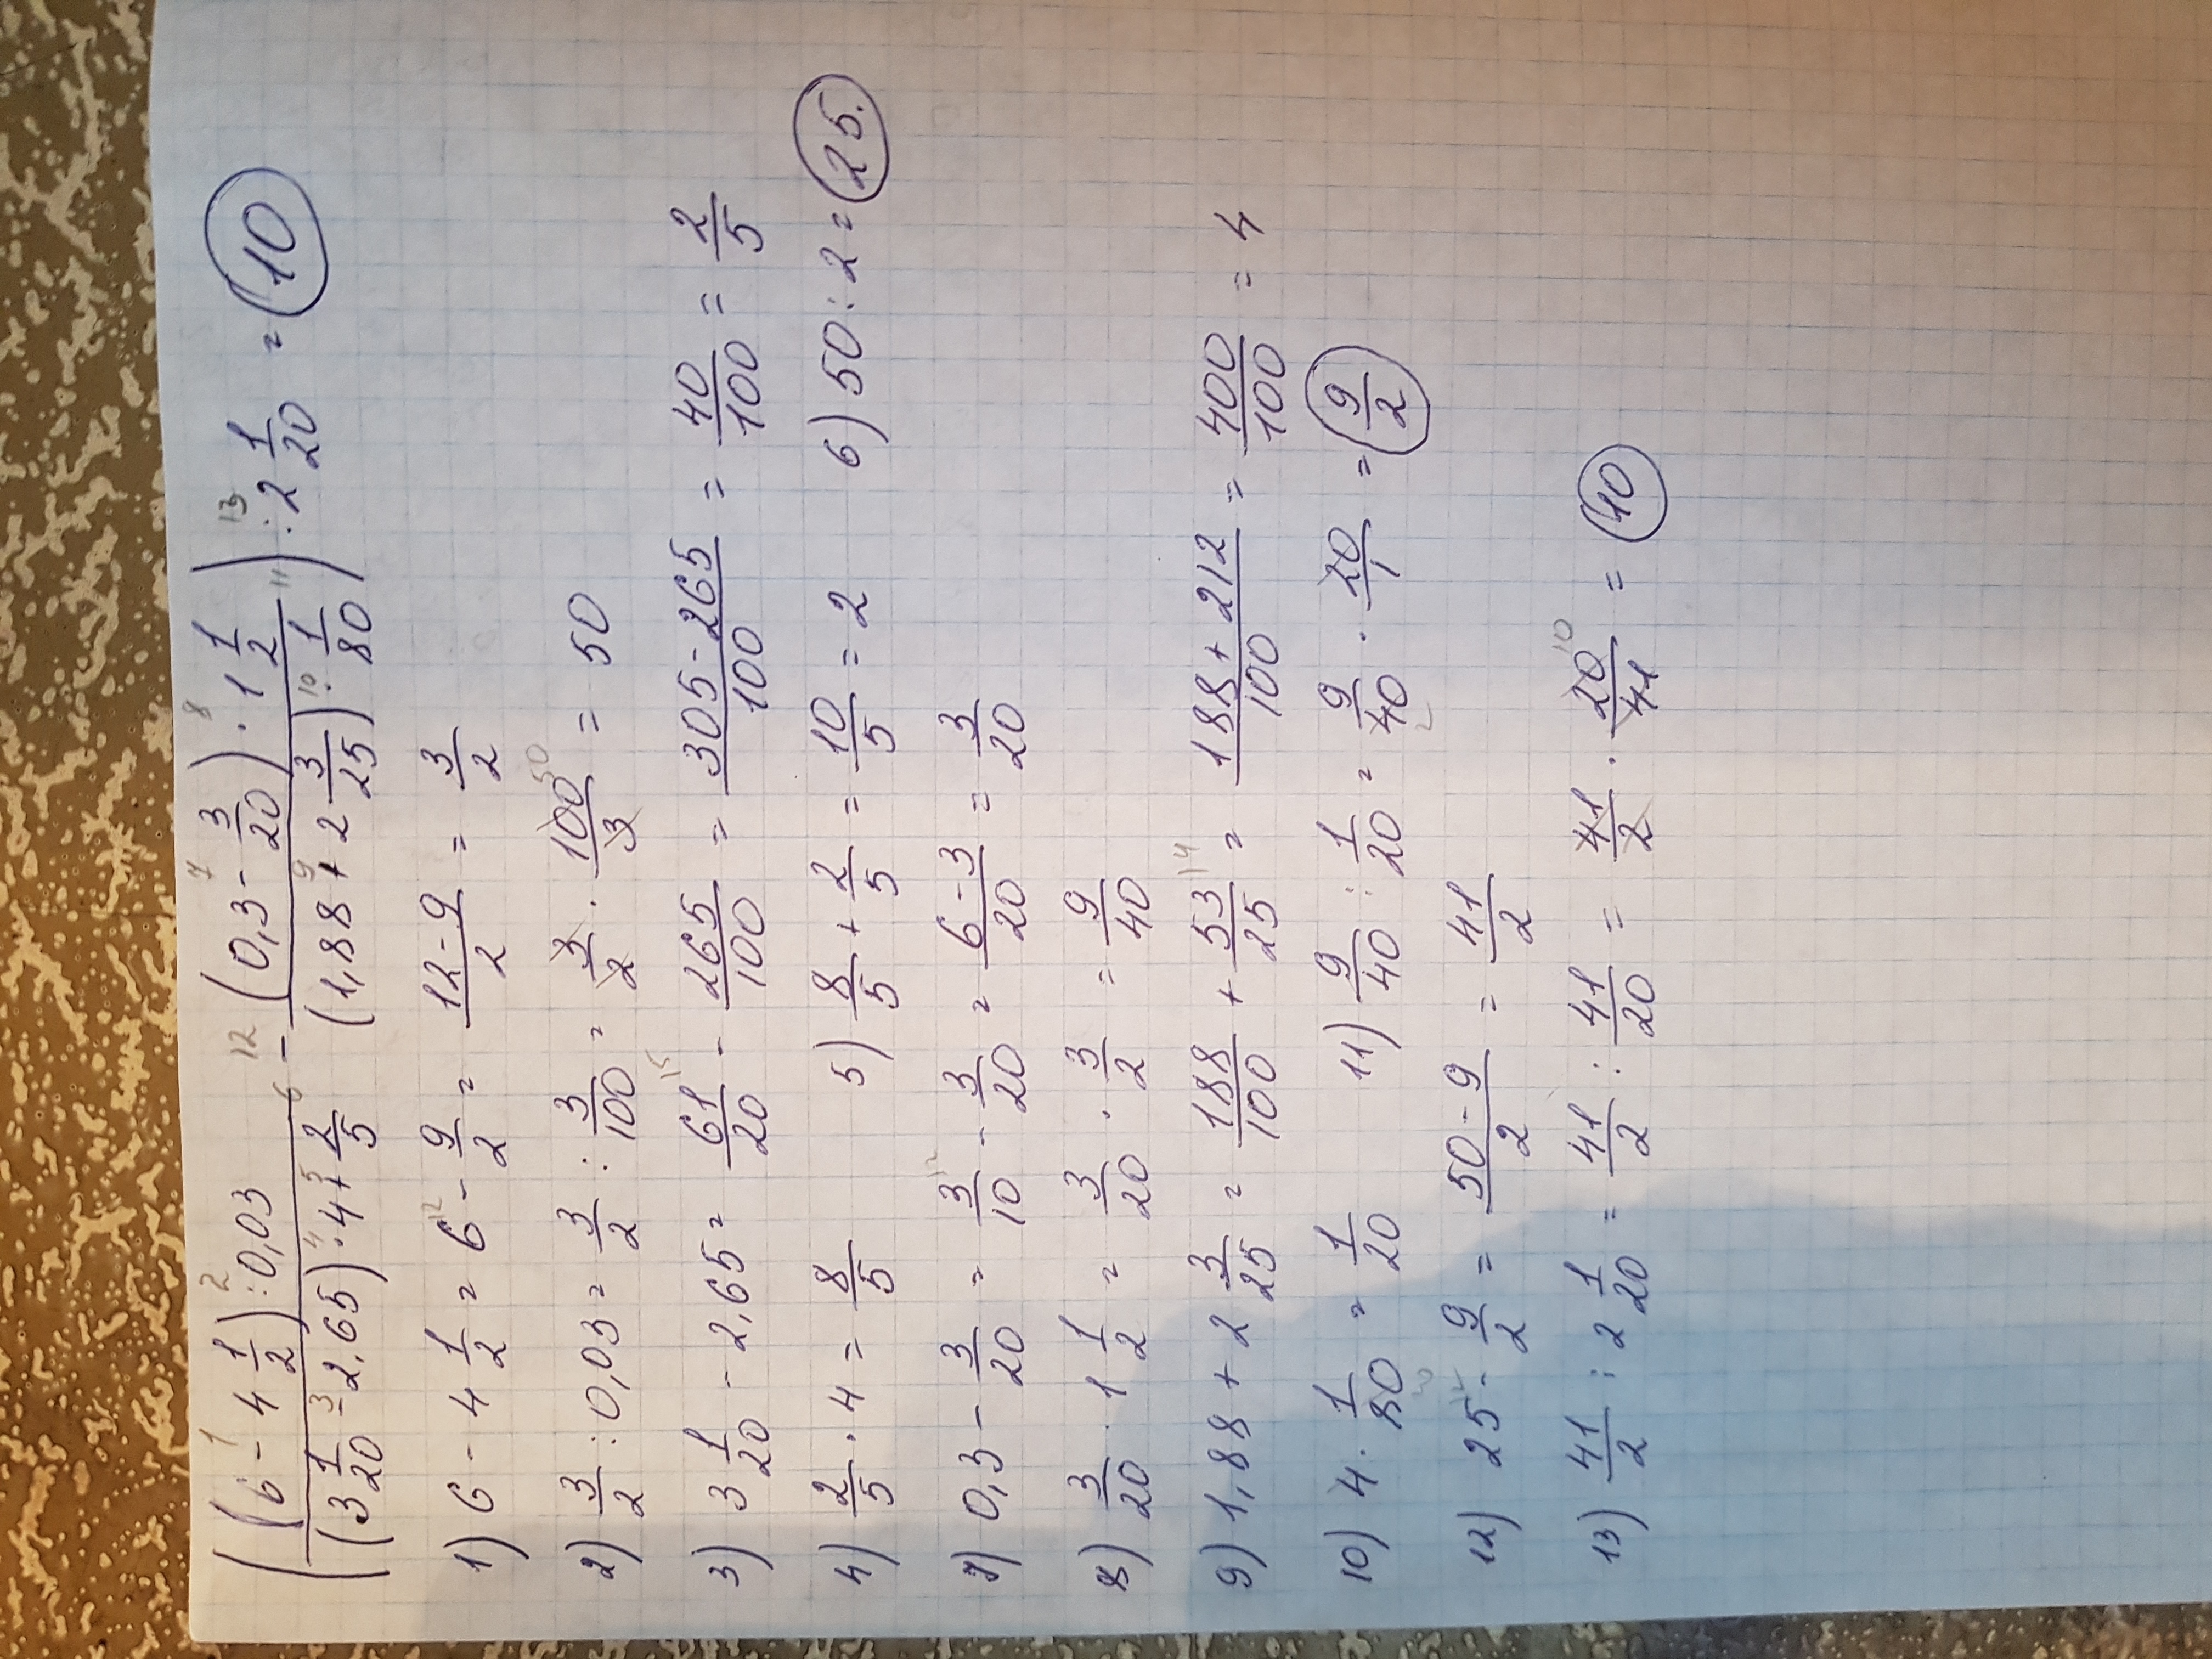 ((6 - 4 1/2) : 0,03 / ((3 1/20 - 2,65) · 4 + 2/5) - (0,3 - 3/20) · 1 1/2 / ((1,88 + 2 3/25) · 1/80)) : 2 1/20 = 10
1) 6 - 4 1/2 = 6 - 9/2 = 12-9/2 = 3/2
2) 3/2 : 0,03 = 3/2 : 3/100 = 3/2 · 100/3 = 50
3) 3 1/20 - 2,65 = 61/20 - 265/100 = 305-265/100 = 40/100 = 2/5
4) 2/5 · 4 = 8/5 5) 8/5 + 2/5 = 10/5 = 2 6) 50 : 2 = 25.
7) 0,3 - 3/20 = 3/10 - 3/20 = 6-3/20 = 3/20
8) 3/20 · 1 1/2 = 3/20 · 3/2 = 9/40
9) 1,88 + 2 3/25 = 188/100 + 53/25 = 188+212/100 = 400/100 = 4
10) 4 · 1/80 = 1/20 11) 9/40 : 1/20 = 9/40 · 20/1 = 9/2
12) 25 - 9/2 = 50-9/2 = 41/2
13) 41/2 : 2 1/20 = 41/2 : 41/20 = 41/2 · 20/41 = 10